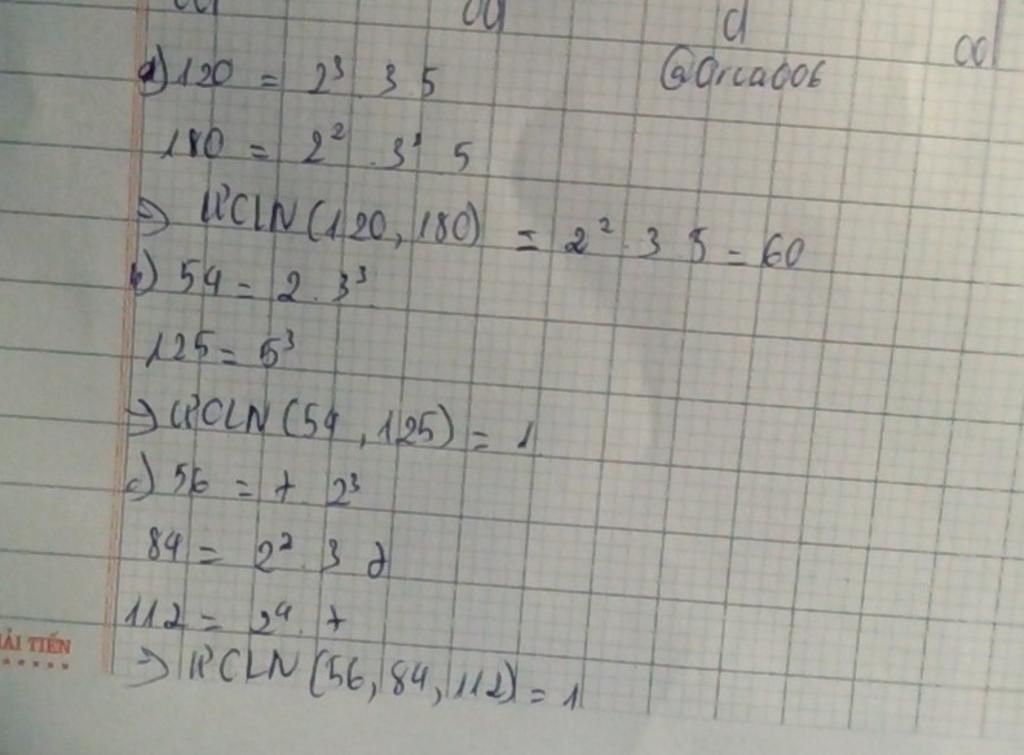 a) 120 = 2³ 3 5
@Orca006
180 = 2² . 3¹ 5
=) ƯCLN (120, 180) = 2² . 3 5 = 60
b) 54 = 2 . 3³
125 = 5³
=) ƯCLN (54, 125) = 1
c) 56 = 7 2³
84 = 2² . 3 7
112 = 2⁴ . 7
=) ƯCLN (56, 84, 112) = 1
ẢI TIẾN